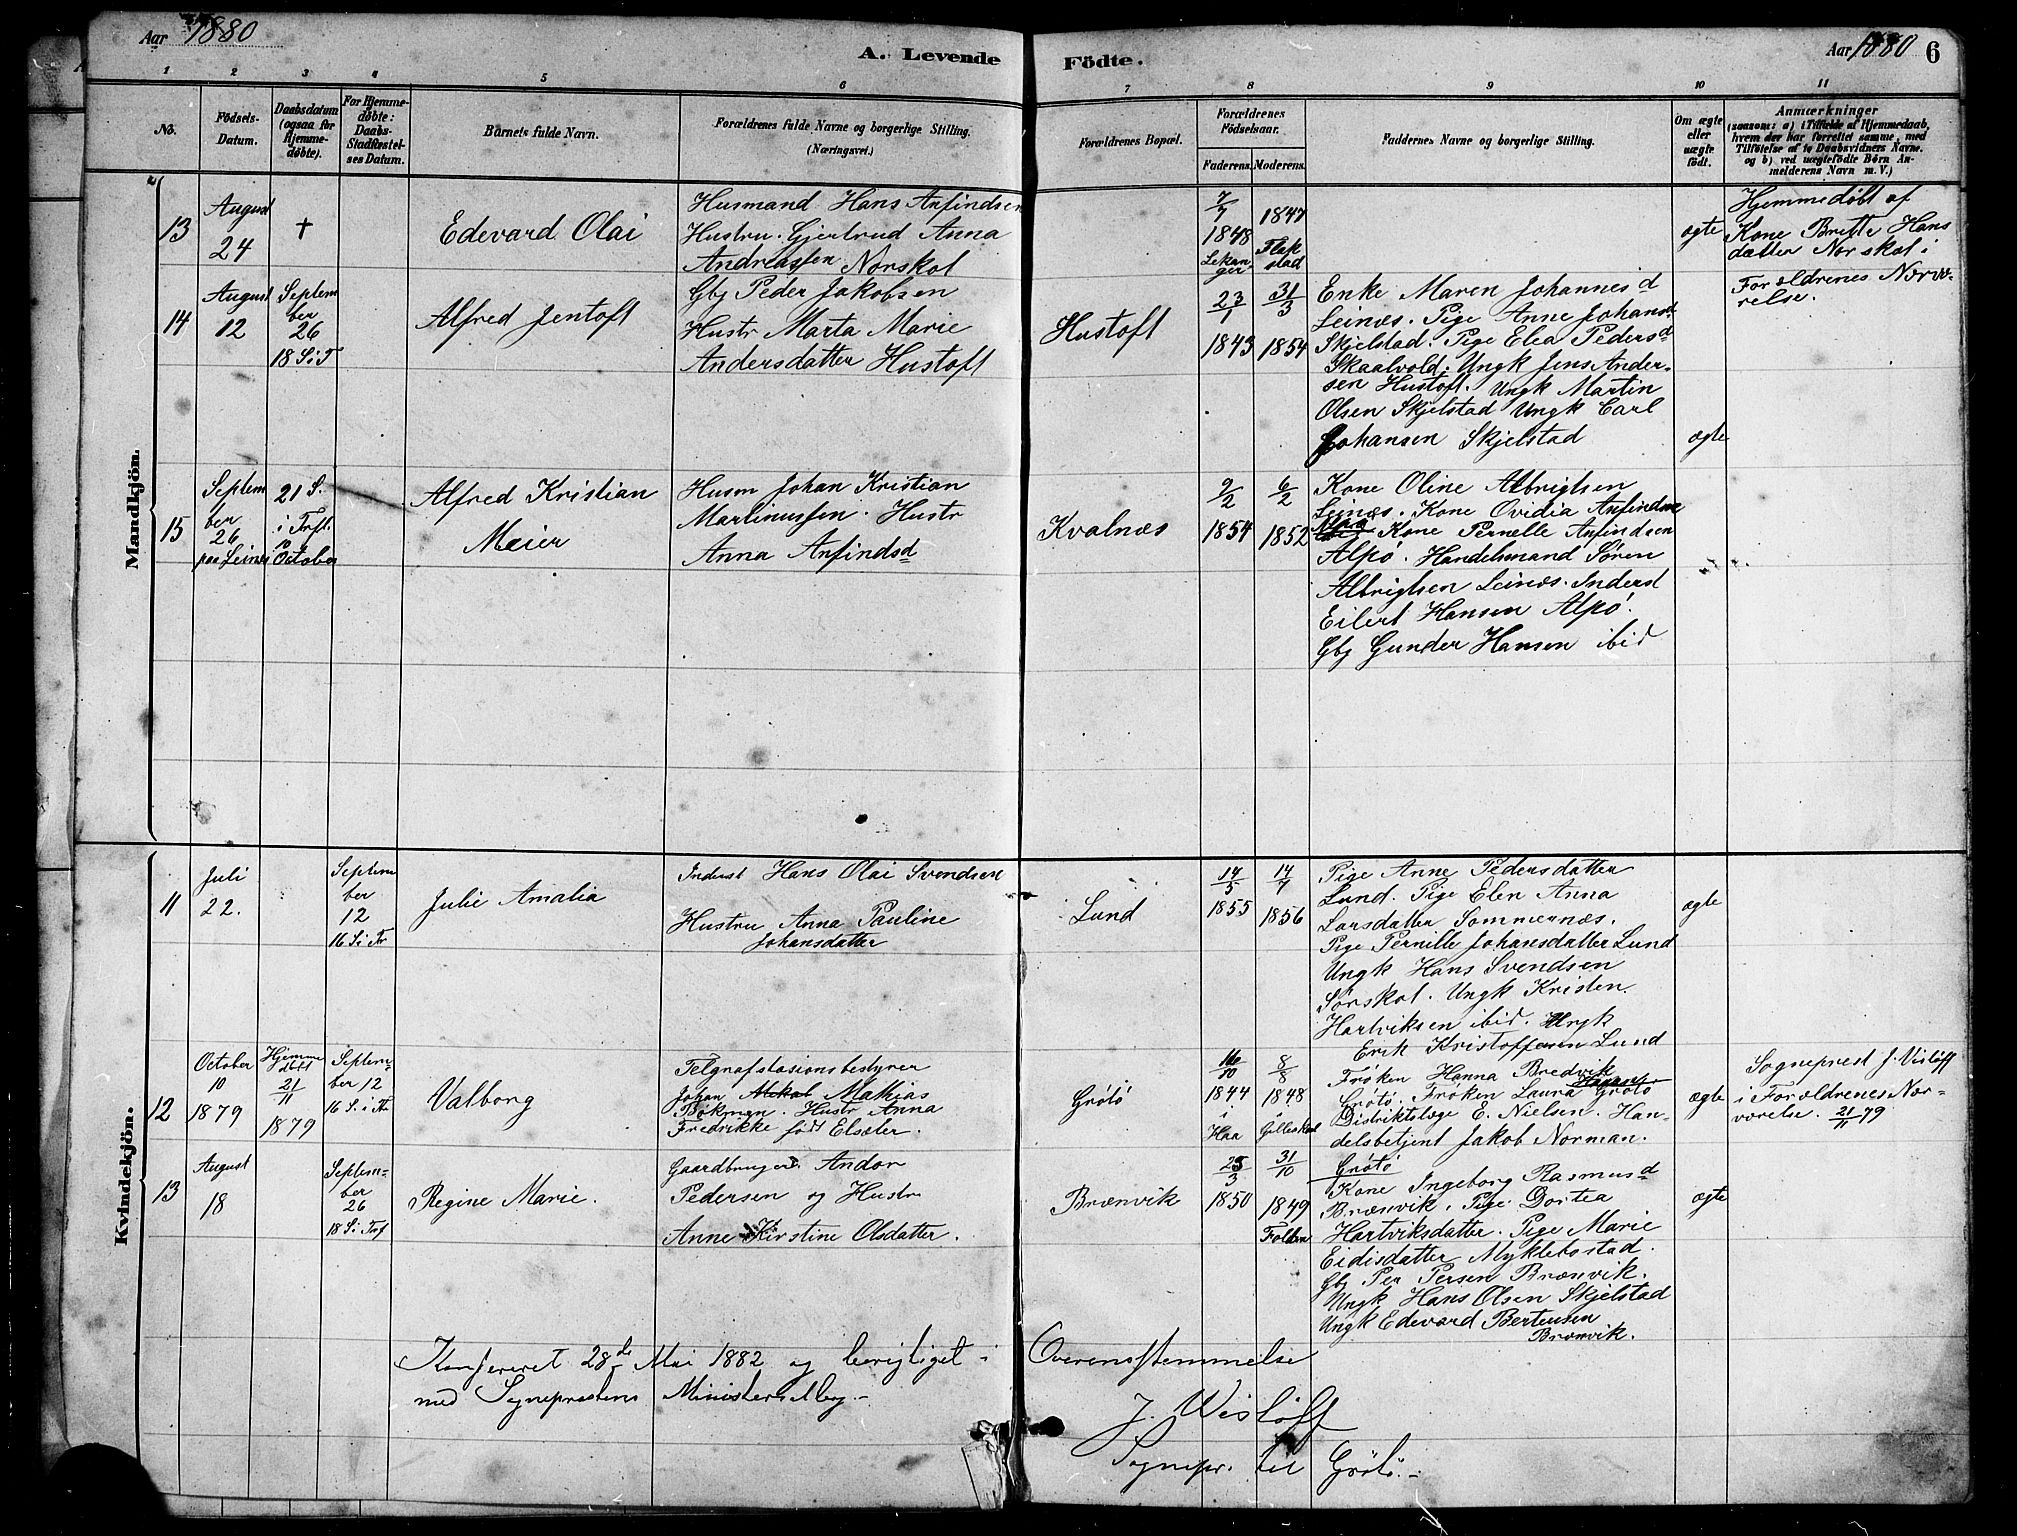 Aar 1880
A. Levende
Födte.
Aar 1880
6
1 2 3 4 5 6 7 8 9 10 11
No.
Födsels-
Datum.
Daabsdatum
(ogsaa for
Hjemme-
döbte).
For Hjemme-
döbte:
Daabs-
Stadfæstel-
ses Datum.
Barnets fulde Navn.
Forældrenes fulde Navne og borgerlige Stilling.
(Næringsvei.)
Forældrenes Bopæl.
Forældrenes
Födselsaar.
Faderens.
Moderens.
Faddernes Navne og borgerlige Stilling.
Om ægte
eller
uægte
födt.
Anmærkninger
(saasom: a) i Tilfælde af Hjemmedaab,
hvem der har forrettet samme, med
Tilföielse af to Daabsvidners Navne.
og b) ved uægtefödte Börn An-
melderens Navn m. V.)
Mandkjön.
13
August
24
†
Edevard Olai
Husmand Hans Anfindsen
Hustru Gjertrud Anna
Andreassen Norskot
7/7
1848
Lekan-
ger
1847
Flak-
stad
ægte
Hjemmedøbt af
Kone Britte Hans
datter Norskot i
Forældrenes Nærvæ-
relse.
14
August
12
Septem
ber
26
18 S. i T
Alfred Jentoft
Gbj Peder Jakobsen
Hustr Marta Marie
Andersdatter Hustoft
Hustoft
23/1
1843
31/3
1854
Enke Maren Johannesd
Leines. Pige Anne Johansd
Skjelstad. Pige Elea Pedersd
Skaalvold. Ungk Jens Ander-
sen Hustoft. Ungk Martin
Olsen Skjelstad Ungk Carl
Johansen Skjelstad
ægte
15
Septem
ber
26
paa Leines
21 S.
i Trft.
October
Alfred Kristian
Meier
Husm Johan Kristian
Martinussen. Hustr
Anna Anfindsd
Kvalnæs
9/2
1854
6/2
1852
Kone Oline Albrigtsen
Leinæs. Kone Ovidia Anfindsen
Kone Pernelle Anfindsen
Alpø. Handelsmand Sören
Albrigtsen Leinæs. Inderst
Eilert Hansen Alpø.
Gbj Gunder Hansen ibid
Kvindekjön.
11
Juli
22.
Septem
ber
12
16 S. i Tr
Julie Amalia
Inderst Hans Olai Svendsen
Hustru Anna Pauline
Johansdatter
Lund
14/5
1855
14/7
1856
Pige Anne Pedersdatter
Lund. Pige Elen Anna
Larsdatter Sommernæs.
Pige Pernille Johansdatter Lund
Ungk Hans Svendsen
Sörskot. Ungk Kristen
Hartviksen ibid. Ungk
Erik Kristoffersen Lund
ægte
12
October
10
1879
Hjemme
døbt
21/11
1879
Septem-
ber 12
16 S. i Tr
Valborg
Telgrafstasionsbestyrer
Johan Mathias
Bökman. Hustr Anna
Fredrikke født Elsæter.
Grötö
16/10
1844
i
Haa
8/8
1848
Gilleskaal
Frøken Hanna Bredvik
Grötö. Frøken Laura Grötö
Distriktslæge E. Nielsen. Han-
delsbetjent Jakob Norman.
Grötö
ægte
Sogneprest J. Visløff
i Forældrenes Nær-
værelse. 21/11 79
13
August
18
Septem-
ber
26
18 S. i Trf
Regine Marie.
Gaardbruger Andor
Pedersen og Hustr
Anne Kirstine Olsdatter.
Brænvik
23/3
1850
31/10
1849
Folden
Kone Ingeborg Rasmusd
Brænvik. Pige Dortea
Hartviksdatter. Pige Marie
Eidisdatter Myklebostad.
Gbj. Per Persen Brænvik.
Ungk Hans Olsen Skjelstad
Ungk Edevard Berteusen
Brænvik.
ægte
Konfereret 28de Mai 1882 og berigtiget i Overensstemmelse
med Sogneprestens Ministerialbog.
J. Wisløff
Sognepr. til Grötö.